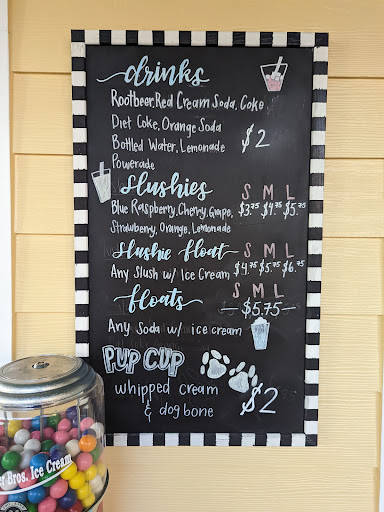 drinks
Rootbeer, Red Cream Soda, Coke
Diet Coke, Orange Soda
Bottled Water, Lemonade $2
Powerade
Slushies S M L
Blue Raspberry, Cherry, Grape, $3.75 $4.75 $5.75
Strawberry, Orange, Lemonade
Slushie float S M L
Any Slush w/ Ice Cream $4.75 $5.75 $6.75
floats S M L
$5.75
Any Soda w/ ice cream
PUP CUP
whipped cream
& dog bone $2
er Bros. Ice Cream